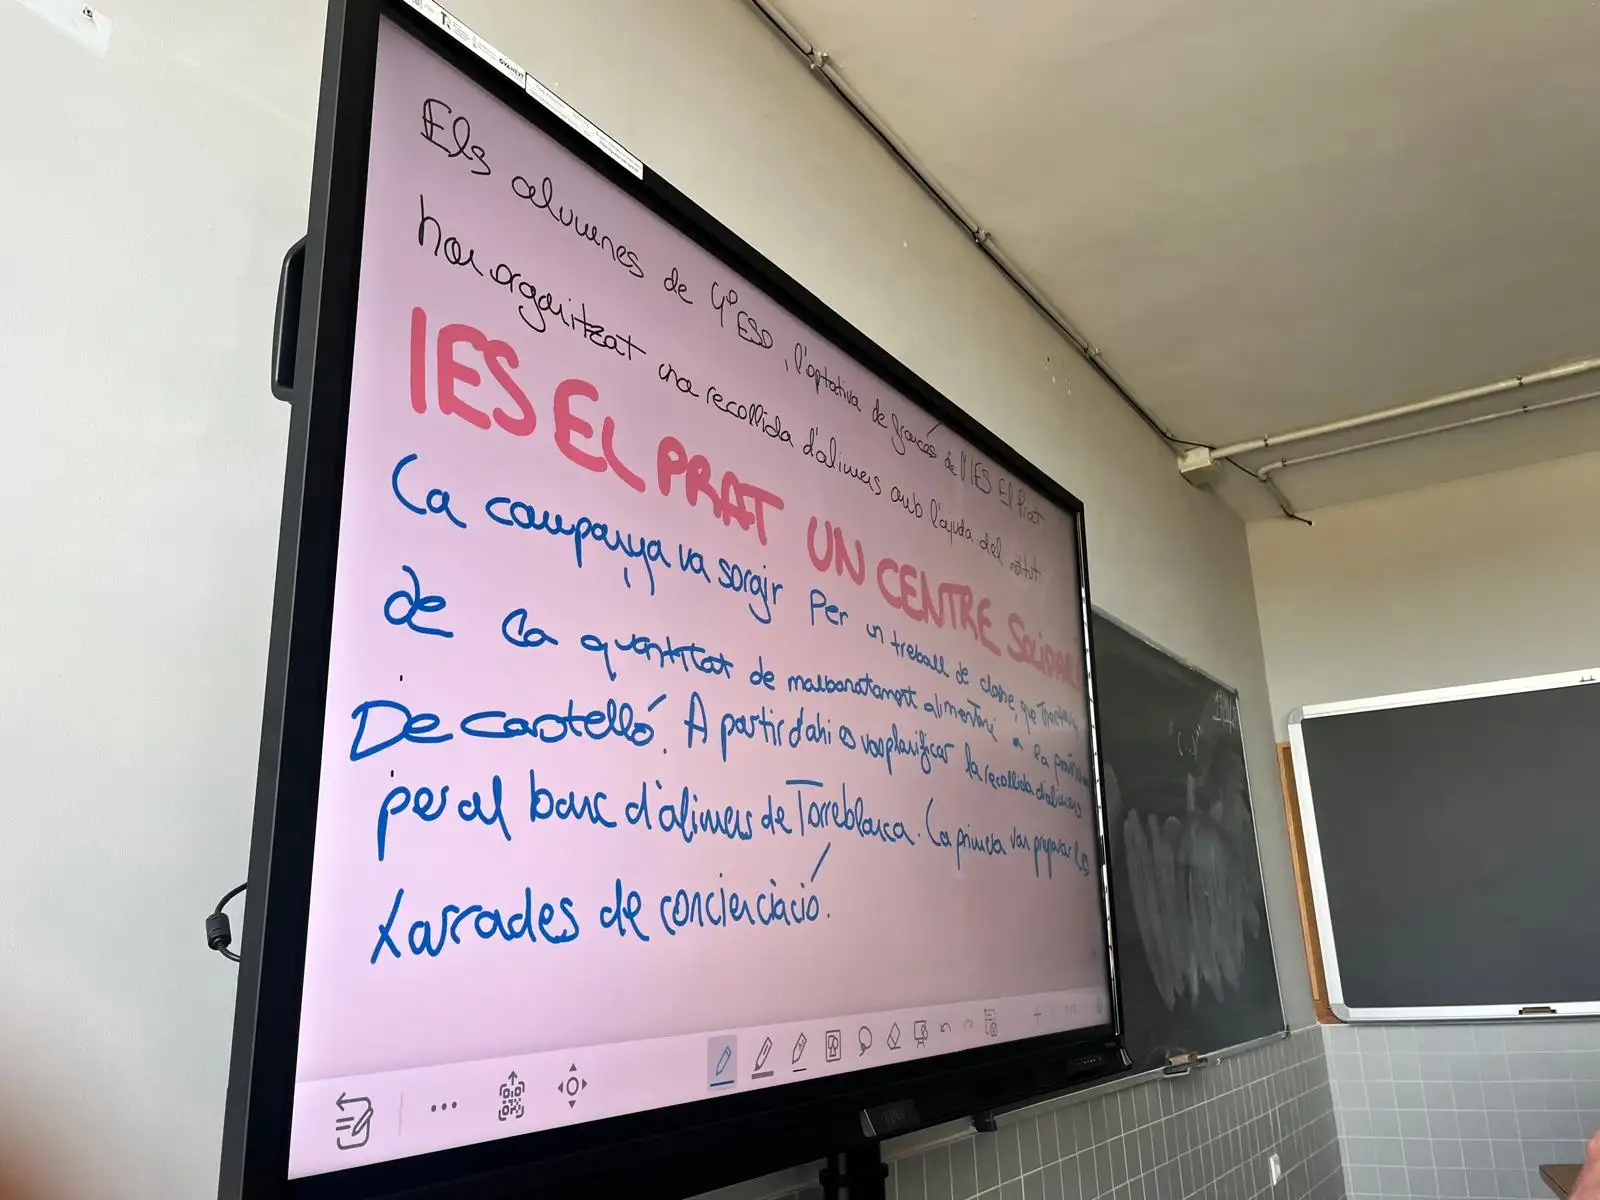 Els alumnes de 4º ESO, l'optativa de francés de l'IES El Prat
han organitzat una recollida d'aliments amb l'ajuda del
IES EL PRAT UN CENTRE SOLIDARI
La companya va sorgir per un treball de classe, que
de la quantitat de malbaratament alimentari a la
De castelló. A partir d'ahi es van planificar la recollida d'aliments
per al banc d'aliments de Torreblanca. La primera van preparar
xarrades de concienciació.